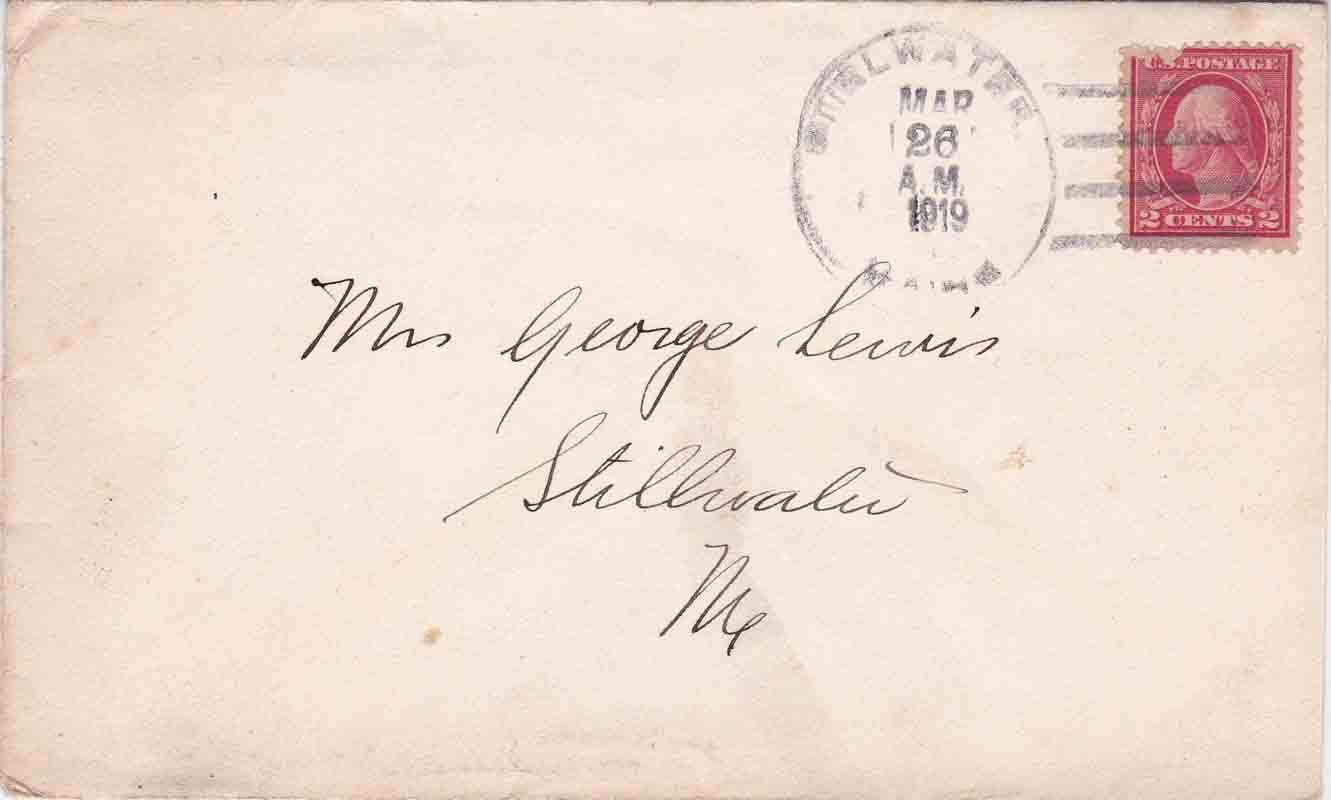 STILLWATER.
MAR
26
A.M.
1919
MAINE
U.S. POSTAGE
2 CENTS 2
Mrs George Lewis
Stillwater
Me